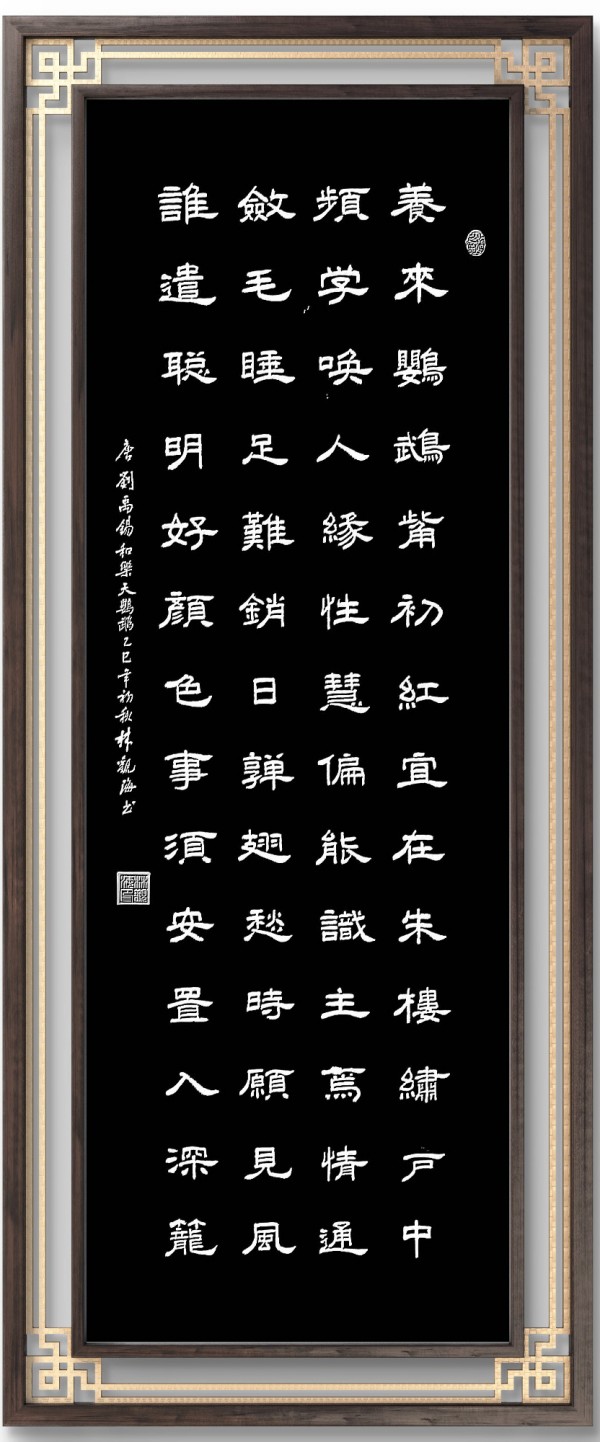 養來鸚鵡觜初紅宜在朱樓繡戶中
頻学喚人緣性慧偏能識主爲情通
斂毛睡足難銷日嚲翅愁時願見風
誰遣聪明好顏色事須安置入深籠
唐劉禹錫和樂天鸚鵡乙巳年初秋林觀海书